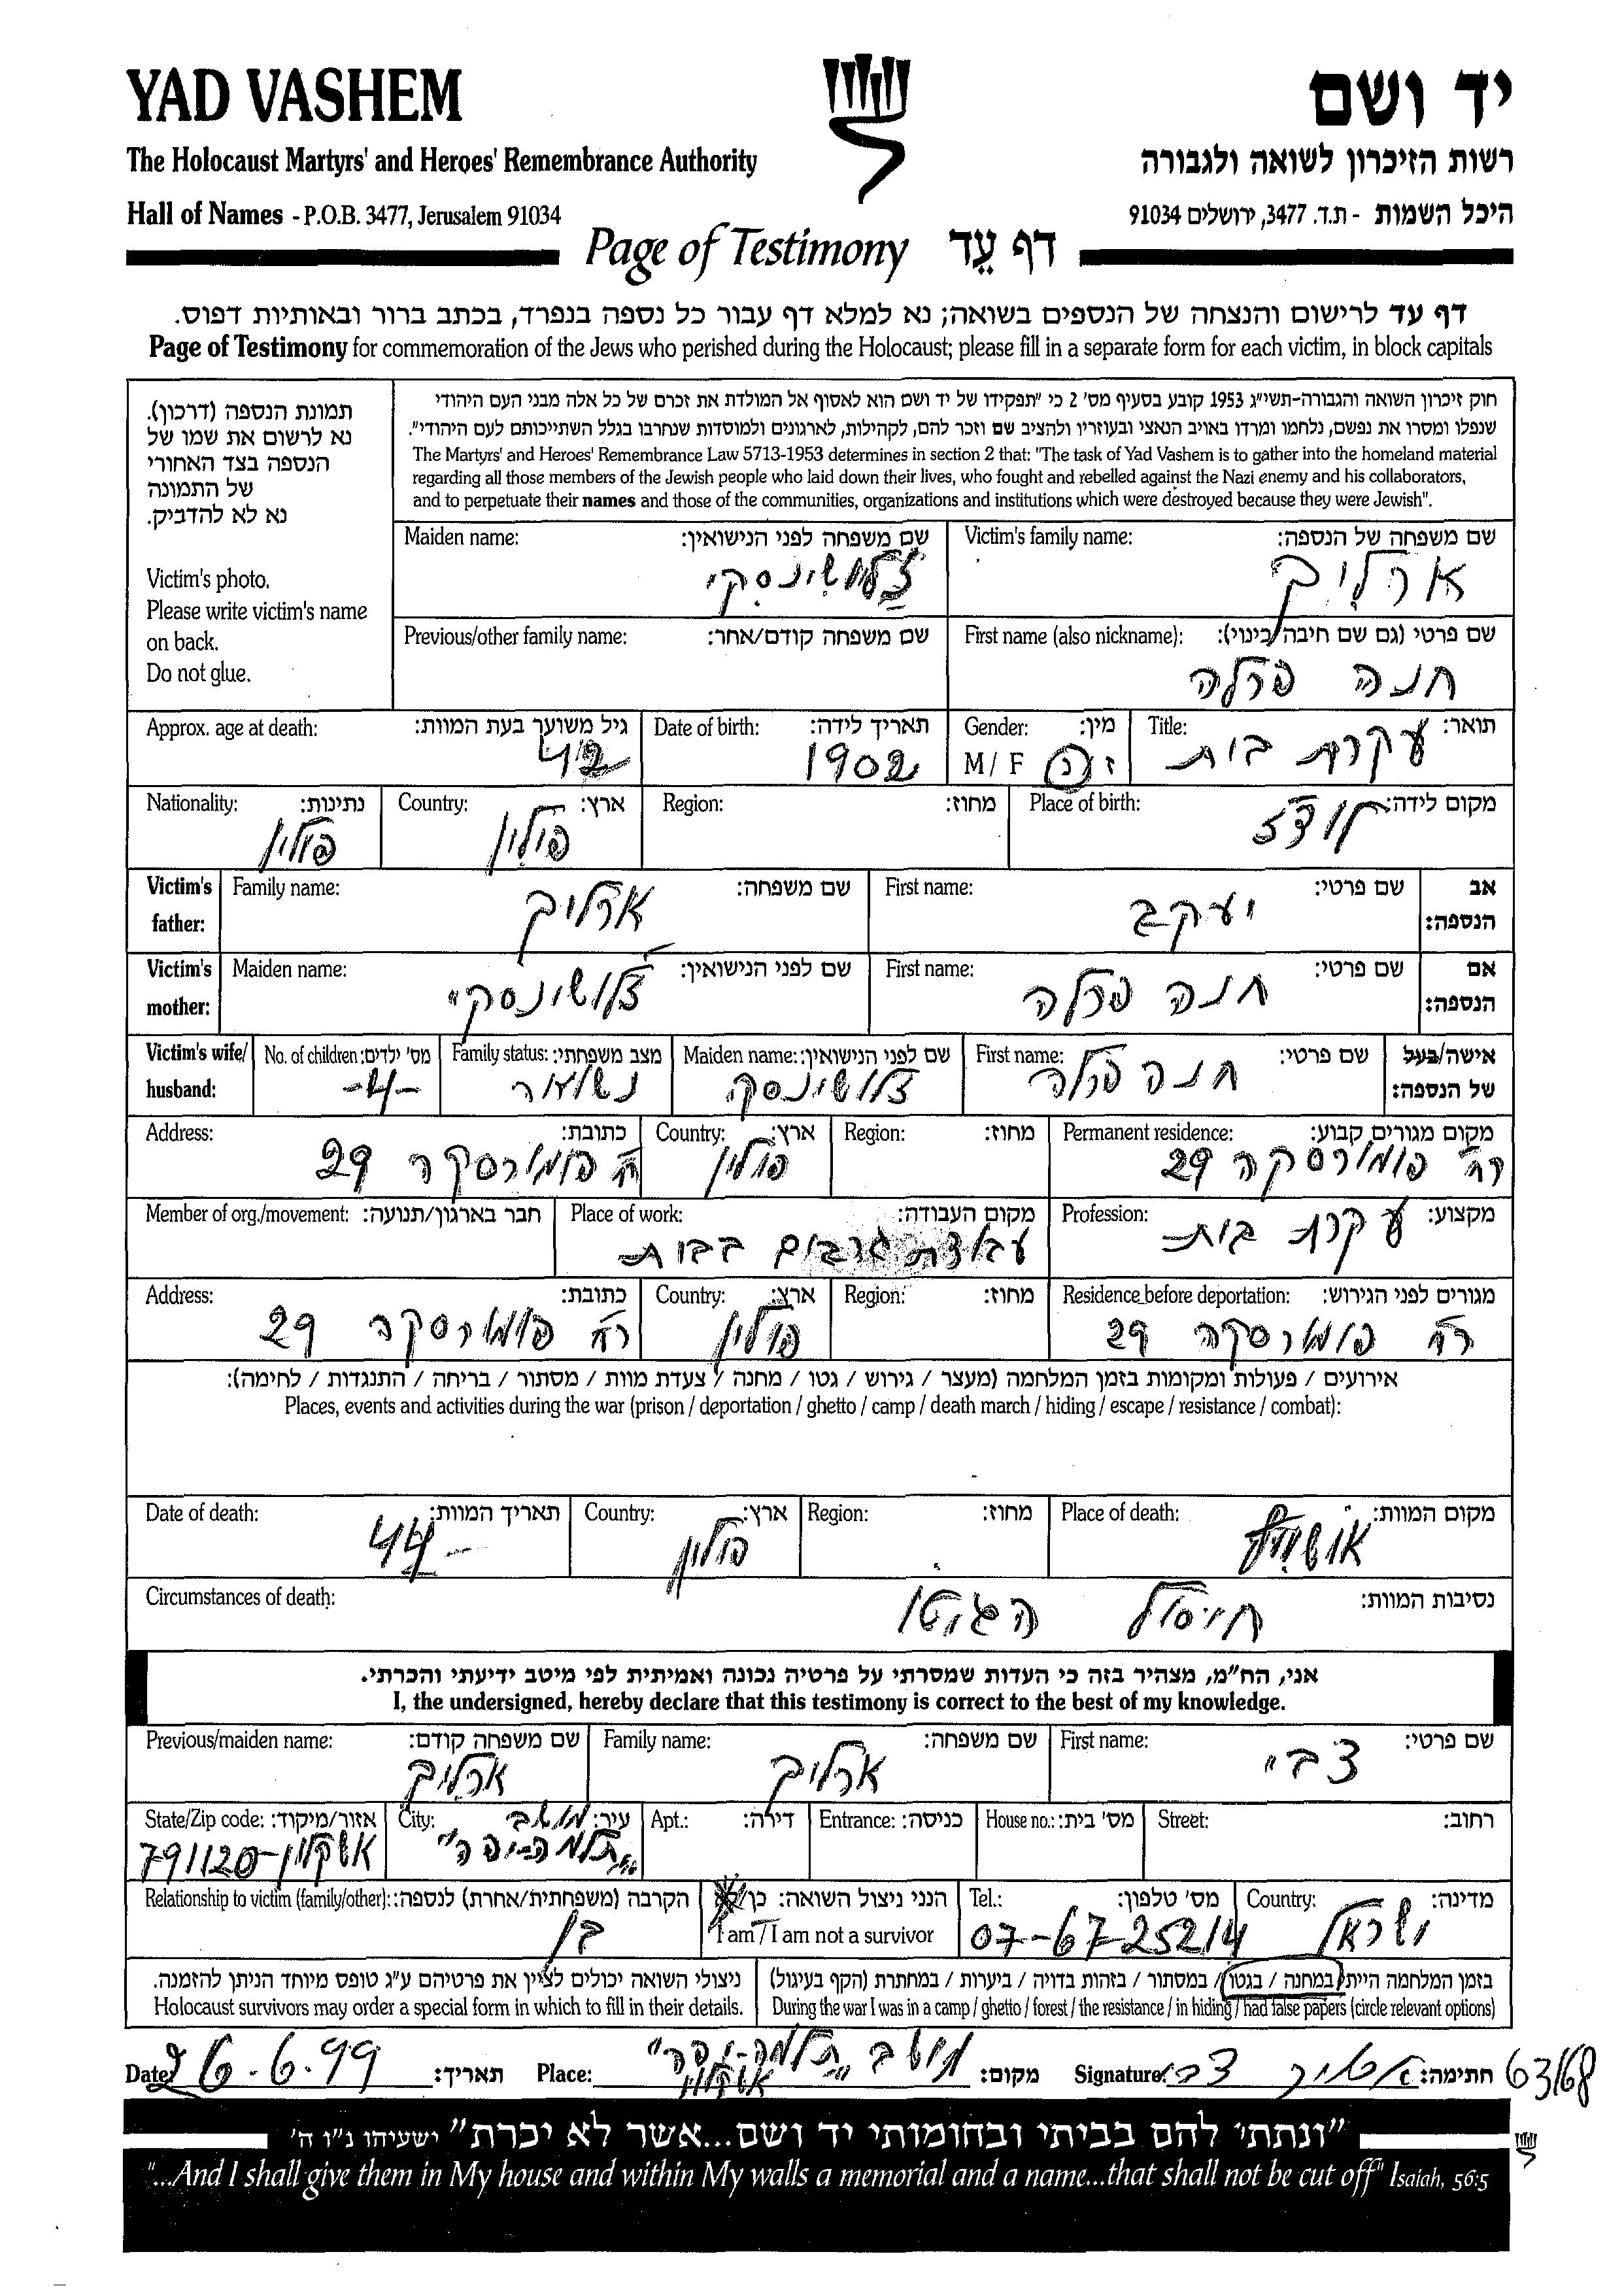 YAD VASHEM
יד ושם
The Holocaust Martyrs' and Heroes' Remembrance Authority
רשות הזיכרון לשואה ולגבורה
Hall of Names - P.O.B. 3477, Jerusalem 91034
היכל השמות - ת.ד. 3477, ירושלים 91034
Page of Testimony דף עֵד
דף עד לרישום והנצחה של הנספים בשואה; נא למלא דף עבור כל נספה בנפרד, בכתב ברור ובאותיות דפוס.
Page of Testimony for commemoration of the Jews who perished during the Holocaust; please fill in a separate form for each victim, in block capitals
תמונת הנספה (דרכון).
נא לרשום את שמו של
הנספה בצד האחורי
של התמונה
נא לא להדביק.
Victim's photo.
Please write victim's name
on back.
Do not glue.
חוק זיכרון השואה והגבורה-תשי"ג 1953 קובע בסעיף מס' 2 כי "תפקידו של יד ושם הוא לאסוף אל המולדת את זכרם של כל אלה מבני העם היהודי
שנפלו ומסרו את נפשם, נלחמו ומרדו באויב הנאצי ובעוזריו ולהציב שם וזכר להם, לקהילות, לארגונים ולמוסדות שנחרבו בגלל השתייכותם לעם היהודי".
The Martyrs' and Heroes' Remembrance Law 5713-1953 determines in section 2 that: "The task of Yad Vashem is to gather into the homeland material
regarding all those members of the Jewish people who laid down their lives, who fought and rebelled against the Nazi enemy and his collaborators,
and to perpetuate their names and those of the communities, organizations and institutions which were destroyed because they were Jewish".
Victim's family name: שם משפחה של הנספה:
ארליך
Maiden name: שם משפחה לפני הנישואין:
זלושינסקי
First name (also nickname): שם פרטי (גם שם חיבה/כינוי):
חנה פרלה
Previous/other family name: שם משפחה קודם/אחר:
Title: תואר:
עקרת בית
Gender: מין:
M / F ז / נ
Date of birth: תאריך לידה:
1902
Approx. age at death: גיל משוער בעת המוות:
42
Place of birth: מקום לידה:
לודז
Region: מחוז:
Country: ארץ:
פולין
Nationality: נתינות:
פולין
Victim's father: אב הנספה:
First name: שם פרטי:
יעקב
Family name: שם משפחה:
ארליך
Victim's mother: אם הנספה:
First name: שם פרטי:
חנה פרלה
Maiden name: שם לפני הנישואין:
זלושינסקי
Victim's wife/husband: אישה/בעל של הנספה:
First name: שם פרטי:
חנה פרלה
Maiden name: שם לפני הנישואין:
זלושינסקי
Family status: מצב משפחתי:
נשואה
No. of children: מס' ילדים:
-4-
Permanent residence: מקום מגורים קבוע:
רח' פומורסקה 29
Region: מחוז:
Country: ארץ:
פולין
Address: כתובת:
רח' פומורסקה 29
Profession: מקצוע:
עקרת בית
Place of work: מקום העבודה:
עבודת גרבים בבית
Member of org./movement: חבר בארגון/תנועה:
Residence before deportation: מגורים לפני הגירוש:
רח' פומורסקה 29
Region: מחוז:
Country: ארץ:
פולין
Address: כתובת:
רח' פומורסקה 29
אירועים / פעולות ומקומות בזמן המלחמה (מעצר / גירוש / גטו / מחנה / צעדת מוות / מסתור / בריחה / התנגדות / לחימה):
Places, events and activities during the war (prison / deportation / ghetto / camp / death march / hiding / escape / resistance / combat):
Place of death: מקום המוות:
Region: מחוז:
Country: ארץ:
פולין
Date of death: תאריך המוות:
44-
Circumstances of death: נסיבות המוות:
חיסול הגיטו
אני, הח"מ, מצהיר בזה כי העדות שמסרתי על פרטיה נכונה ואמיתית לפי מיטב ידיעתי והכרתי.
I, the undersigned, hereby declare that this testimony is correct to the best of my knowledge.
First name: שם פרטי:
צבי
Family name: שם משפחה:
ארליך
Previous/maiden name: שם משפחה קודם:
ארליך
Street: רחוב:
House no.: מס' בית:
Entrance: כניסה:
Apt.: דירה:
City: עיר: מושב
"תלמי-יפה"
State/Zip code: אזור/מיקוד:
אשקלון-791120
Country: מדינה:
ישראל
Tel.: מס' טלפון:
07-67-25214
הנני ניצול השואה: כן/
I am / I am not a survivor
Relationship to victim (family/other): הקרבה (משפחתית/אחרת) לנספה:
בן
בזמן המלחמה הייתי במחנה / בגטו / במסתור / בזהות בדויה / ביערות / במחתרת (הקף בעיגול)
During the war I was in a camp / ghetto / forest / the resistance / in hiding / had false papers (circle relevant options)
ניצולי השואה יכולים לציין את פרטיהם ע"ג טופס מיוחד הניתן להזמנה.
Holocaust survivors may order a special form in which to fill in their details.
Date: 26.6.99 תאריך:
Place: מושב "תלמי-יפה" אשקלון מקום:
Signature: ארליך צבי חתימה:
63/68
"ונתתי להם בביתי ובחומותי יד ושם...אשר לא יכרת" ישעיהו נ"ו ה'
"...And I shall give them in My house and within My walls a memorial and a name...that shall not be cut off" Isaiah, 56:5